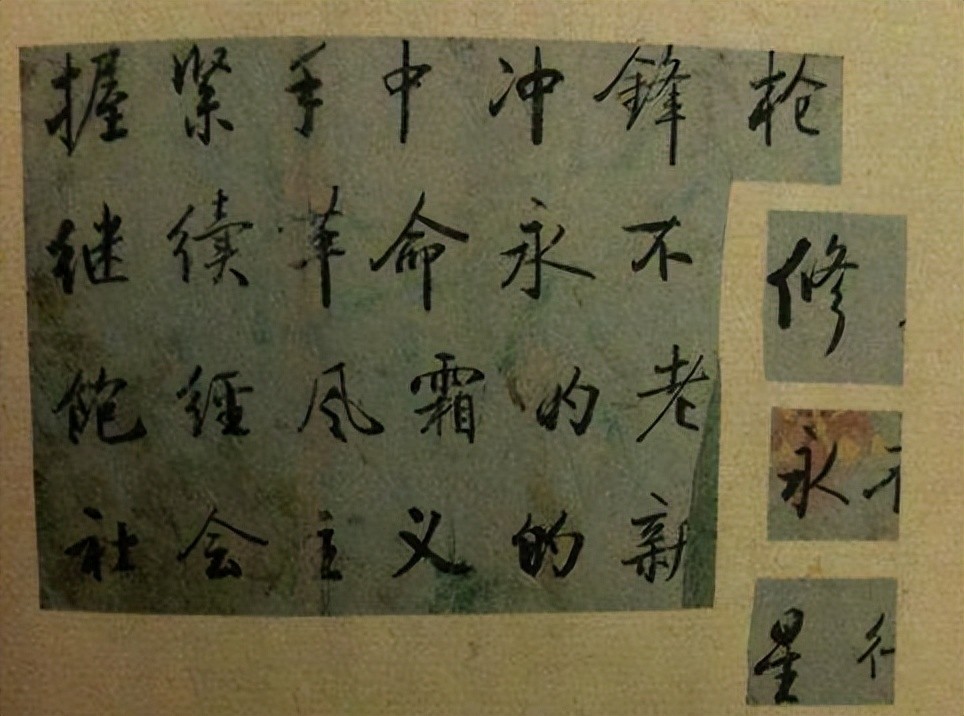 握紧手中冲鋒枪
继續革命永不
飽經风霜的老
社会主义的新
修
永不
星行